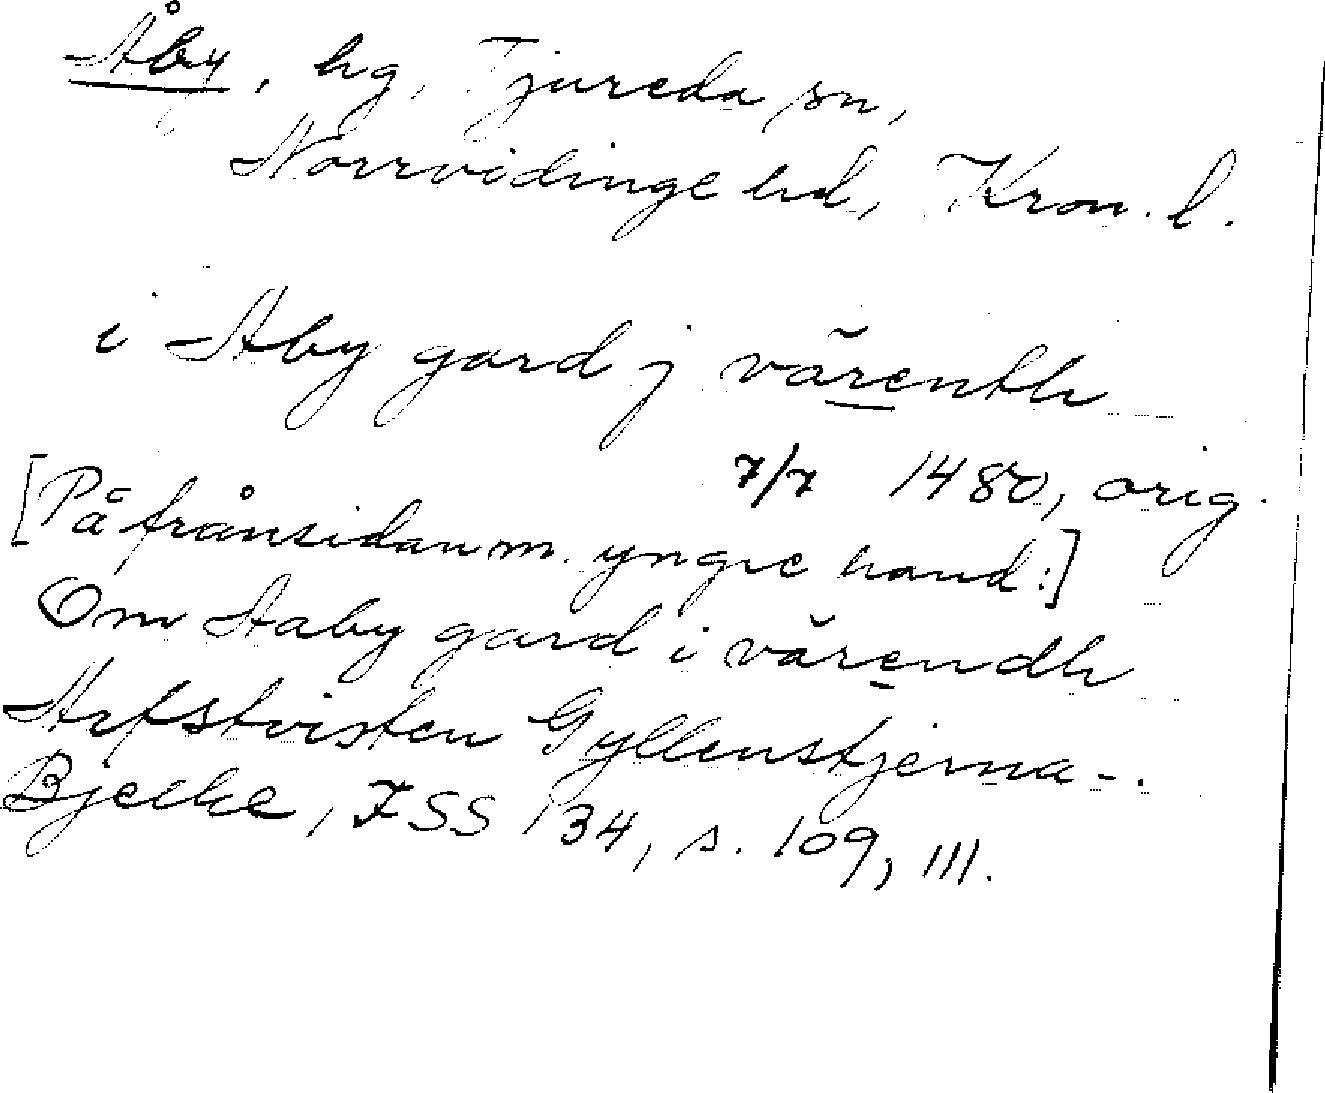 Åby, hg, Tjureda sn,
Norrvidinge hd, Kron. l.
i Aby gard j värenth
7/7 1480, orig.
[På frånsidan m. yngre hand:]
Om Aaby gard i värendh
Arfstvisten Gyllenstjerna-.
Bjelke, FSS 134, s. 109, 111.